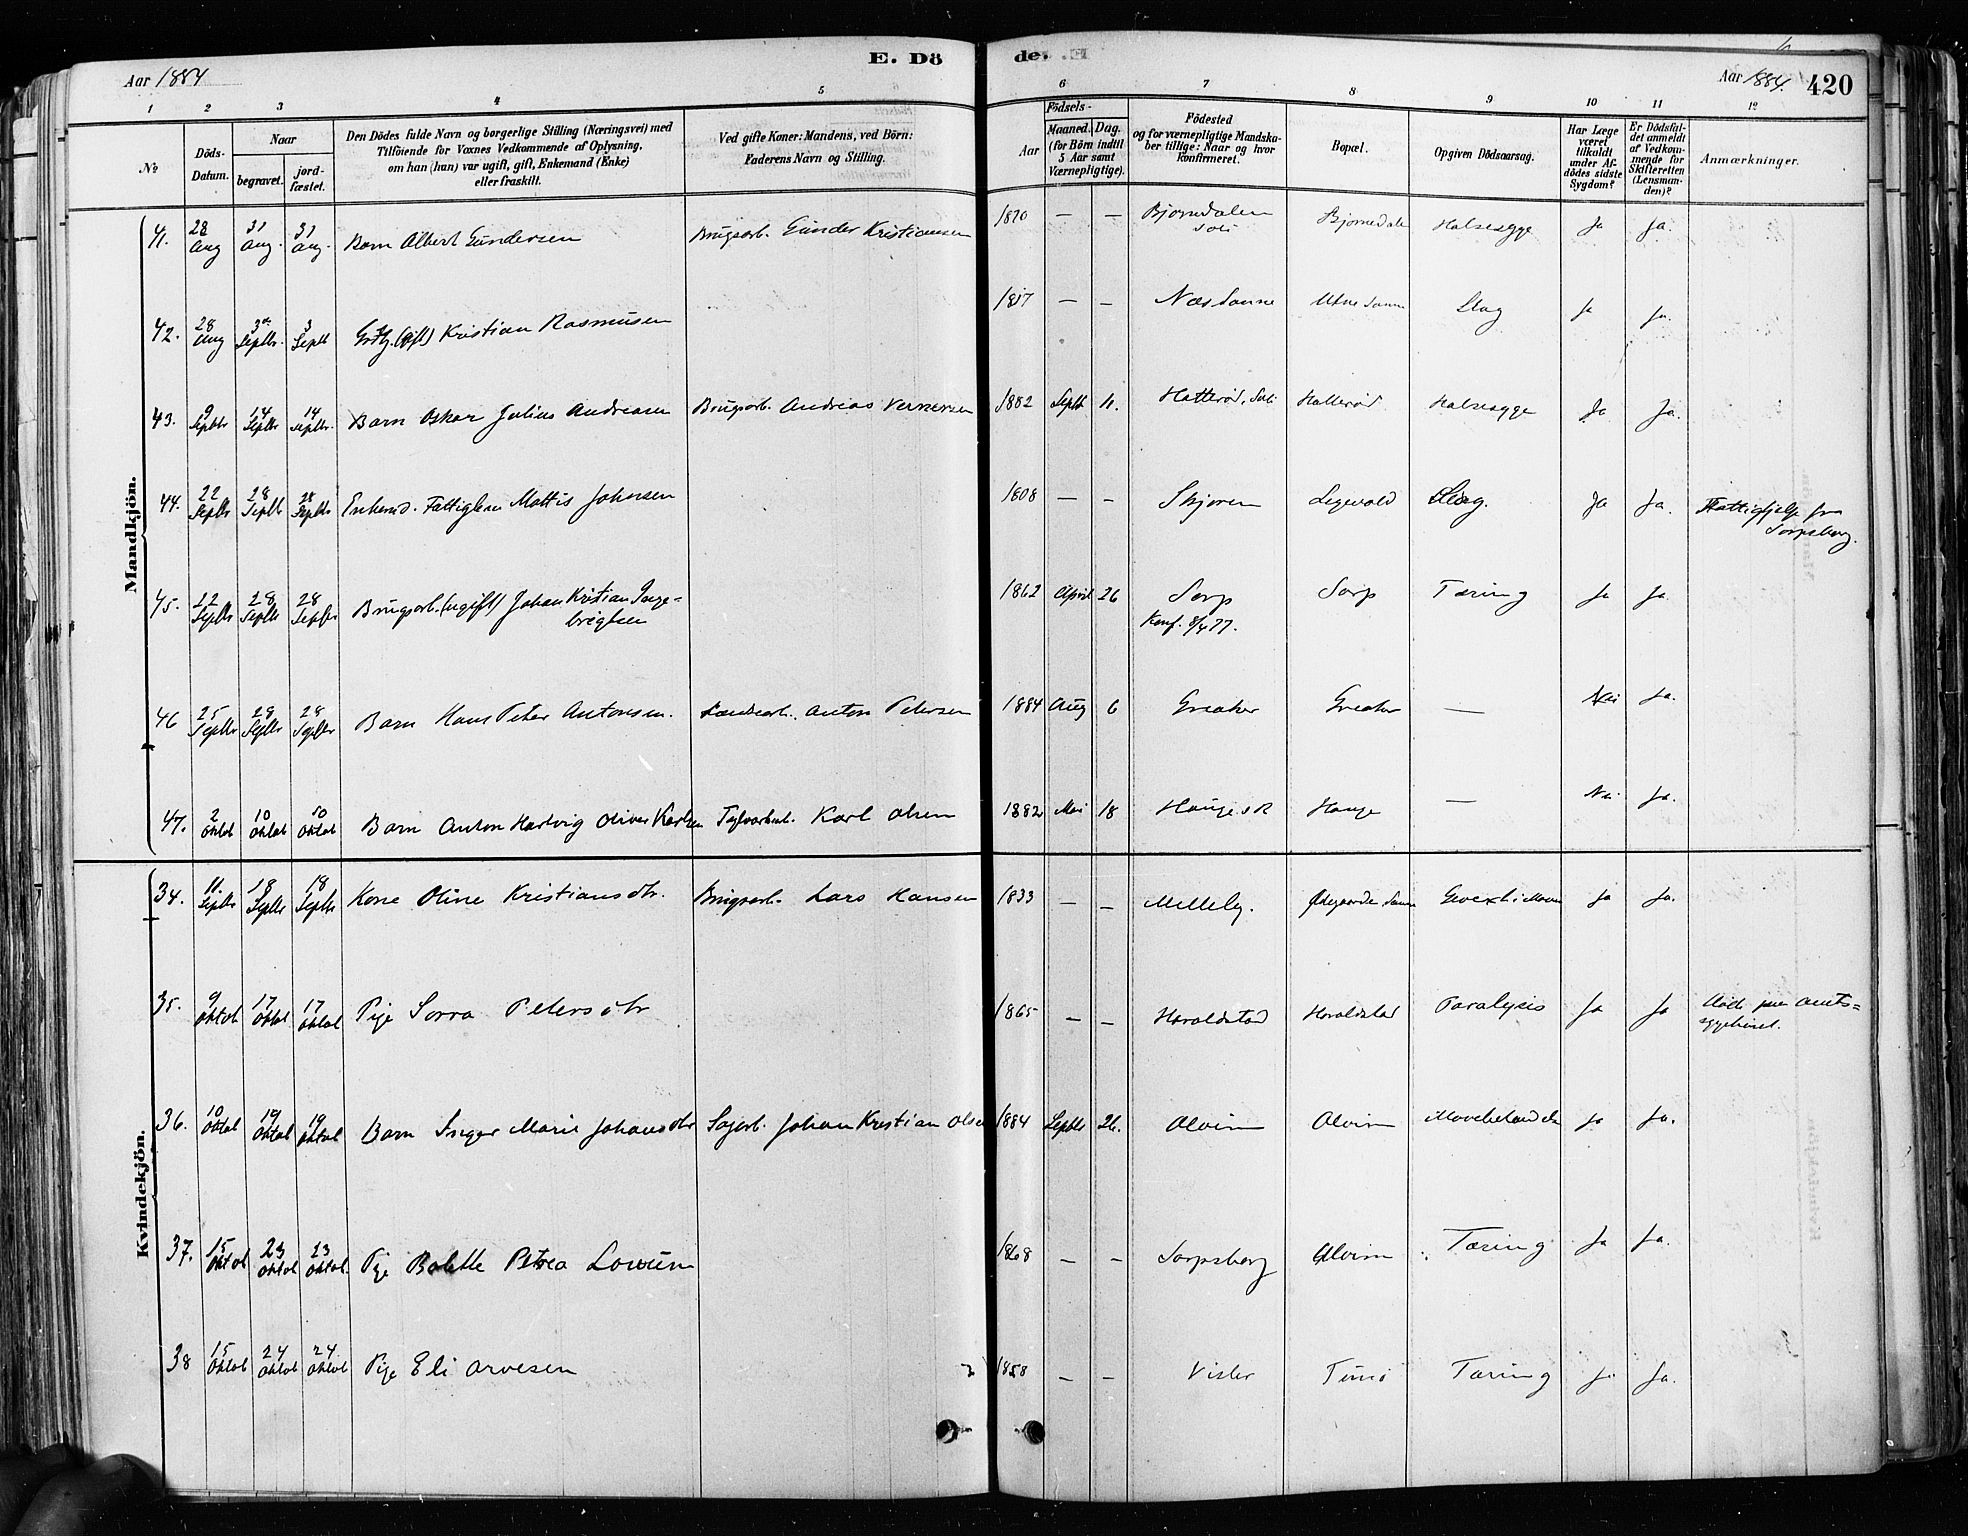 E. Dö
de.
Aar 1884
Aar 1884.
420
1 2 3 4 5 6 7 8 9 10 11 12
No
Döds-Datum.
Naar
begravet.
jord-fæstet.
Den Dödes fulde Navn og borgerlige Stilling (Næringsvei) med
Tilföiende for Voxnes Vedkommende af Oplysning,
om han (hun) var ugift, gift, Enkemand (Enke)
eller fraskilt.
Ved gifte Koner: Mandens, ved Börn:
Faderens Navn og Stilling.
Födsels-
Aar
Maaned. Dag.
(for Börn indtil
5 Aar samt
Værnepligtige).
Födested
og for værnepligtige Mandska-
ber tillige: Naar og hvor
konfirmeret.
Bopæl.
Opgiven Dödsaarsag.
Har Læge
været
tilkaldt
under Af-
dödes sidste
Sygdom?
Er Dödsfal-
det anmeldt
af Vedkom-
mende for
Skifteretten
(Lensman-
den)?
Anmærkninger.
Mandkjön.
41. 28 Aug 31 Aug. 31 Aug. Barn Albert Gundersen Brugsarb. Gunder Kristiansen 1870 — — Bjørndalen Soli Bjørnedale Halsesyge Ja Ja.
42. 28 Aug 3 Septbr. 3 Septb (gift) Kristian Rasmusen 1817 — — Næs Sanne Utne Sanne Slag Ja Ja.
43. 9 Septbr 14 Septbr 14 Septbr. Barn Oskar Julius Andreasen Brugsarb. Andreas Vernersen 1882 Septb 11. Hatterød, Soli Hatterød Halsesyge Ja Ja.
44. 22 Septbr 28 Septbr 28 Septbr Enkemd. Fattiglem Mattis Johnsen 1808 — — Skjøren Legevold Slag. Ja Ja. Fattighjelp fra
Sarpsborg.
45. 22 Septbr 28 Septbr 28 Septbr Brugsarb. (ugift) Johan Kristian Inge=
brigtsen 1862 April 26 Sarp
Konf. 8/4 77. Sarp Tæring Ja Ja.
46 25 Septbr 28 Septbr 28 Septbr Barn Hans Peter Antonsen. Anton Petersen 1884 Aug 6 Greaker Greaker — Nei Ja.
47. 2 Oktob 10 Oktob 10 Oktob Barn Anton Hartvig Oliver Karlsen Karl Olsen 1882 Mai 18 Hauge Hauge — Nei Ja.
Kvindekjön.
34. 11. Septbr 18 Septbr 18 Septbr Kone Oline Kristiansdtr. Brugsarb. Lars Hansen 1833 — — Melleby. Ødegaarden Sanne Gvext i Maven Ja Ja.
35. 9 Oktob 17 Oktob 17 Oktob Pige Petersdtr 1865 — — Haraldstad Haraldstad Paralysis Ja Ja Døde paa Amts=
sygehuset.
36. 10 Oktob 19 Oktob 19 Oktob Barn Inger Marie Johansdtr Sagarb. Johan Kristian Olsen 1884 Septbr 26. Alvim Alvim Ja Ja.
37. 15 Oktob 23 Oktob 23 Oktob. Pige Bolette Petrea 1868 — — Sarpsborg Alvim Tæring Ja Ja.
38 15 Oktob 24 Oktob 24. Oktob Pige Eli Arvesen 1858 — — Visler Tunø Tæring Ja Ja.